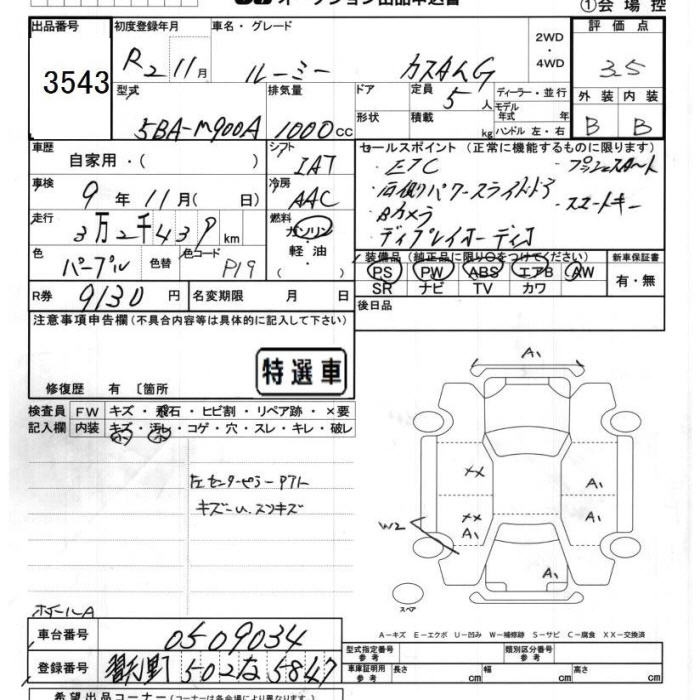 ①会場控
出品番号 初度登録年月 車名・グレード 2WD ・ 4WD 評価点
3543 R2 11月 ルーミー カスタムG 3.5
型式 排気量 ドア 定員 5人 ディーラー・並行 外装 内装
5BA-M900A 1000cc 形状 積載 kg モデル年式 年式 ハンドル 左・右 B B
車歴 自家用・( ) シフト IAT セールスポイント (正常に機能するものに限ります)
・ETC ・プッシュスタート
車検 9年11月( 日) 冷房 AAC ・右側パワースライドドア
・Bカメラ ・スマートキー
走行 3万2千439km 燃料 ガソリン・軽油・( ) ・ディスプレイオーディオ
色 パープル 色替 色コード P19 装備品 (純正品に限り○をつけてください) 新車保証書
PS PW ABS エアB AW 有・無
SR ナビ TV カワ
R券 9130円 名変期限 月 日 後日品
注意事項申告欄(不具合内容等は具体的に記入して下さい)
特選車
修復歴 有 〔箇所
検査員 FW キズ・飛石・ヒビ割・リペア跡・×要
記入欄 内装 キズ・汚レ・コゲ・穴・スレ・キレ・破レ
A1
左センターピラーアウト
キズ小、スリキズ
XX A1
XX A1 A1
W2
A1
スペア
ホイールA
A-キズ E-エクボ U-凹み W-補修跡 S-サビ C-腐食 XX-交換済
車台番号 0509034
型式指定番号 参考 類別区分番号 参考
登録番号 502 な 5847
車庫証明用 参考 長さ cm 幅 cm 高さ cm
希望出品コーナー(コーナーは各会場により異なります。)